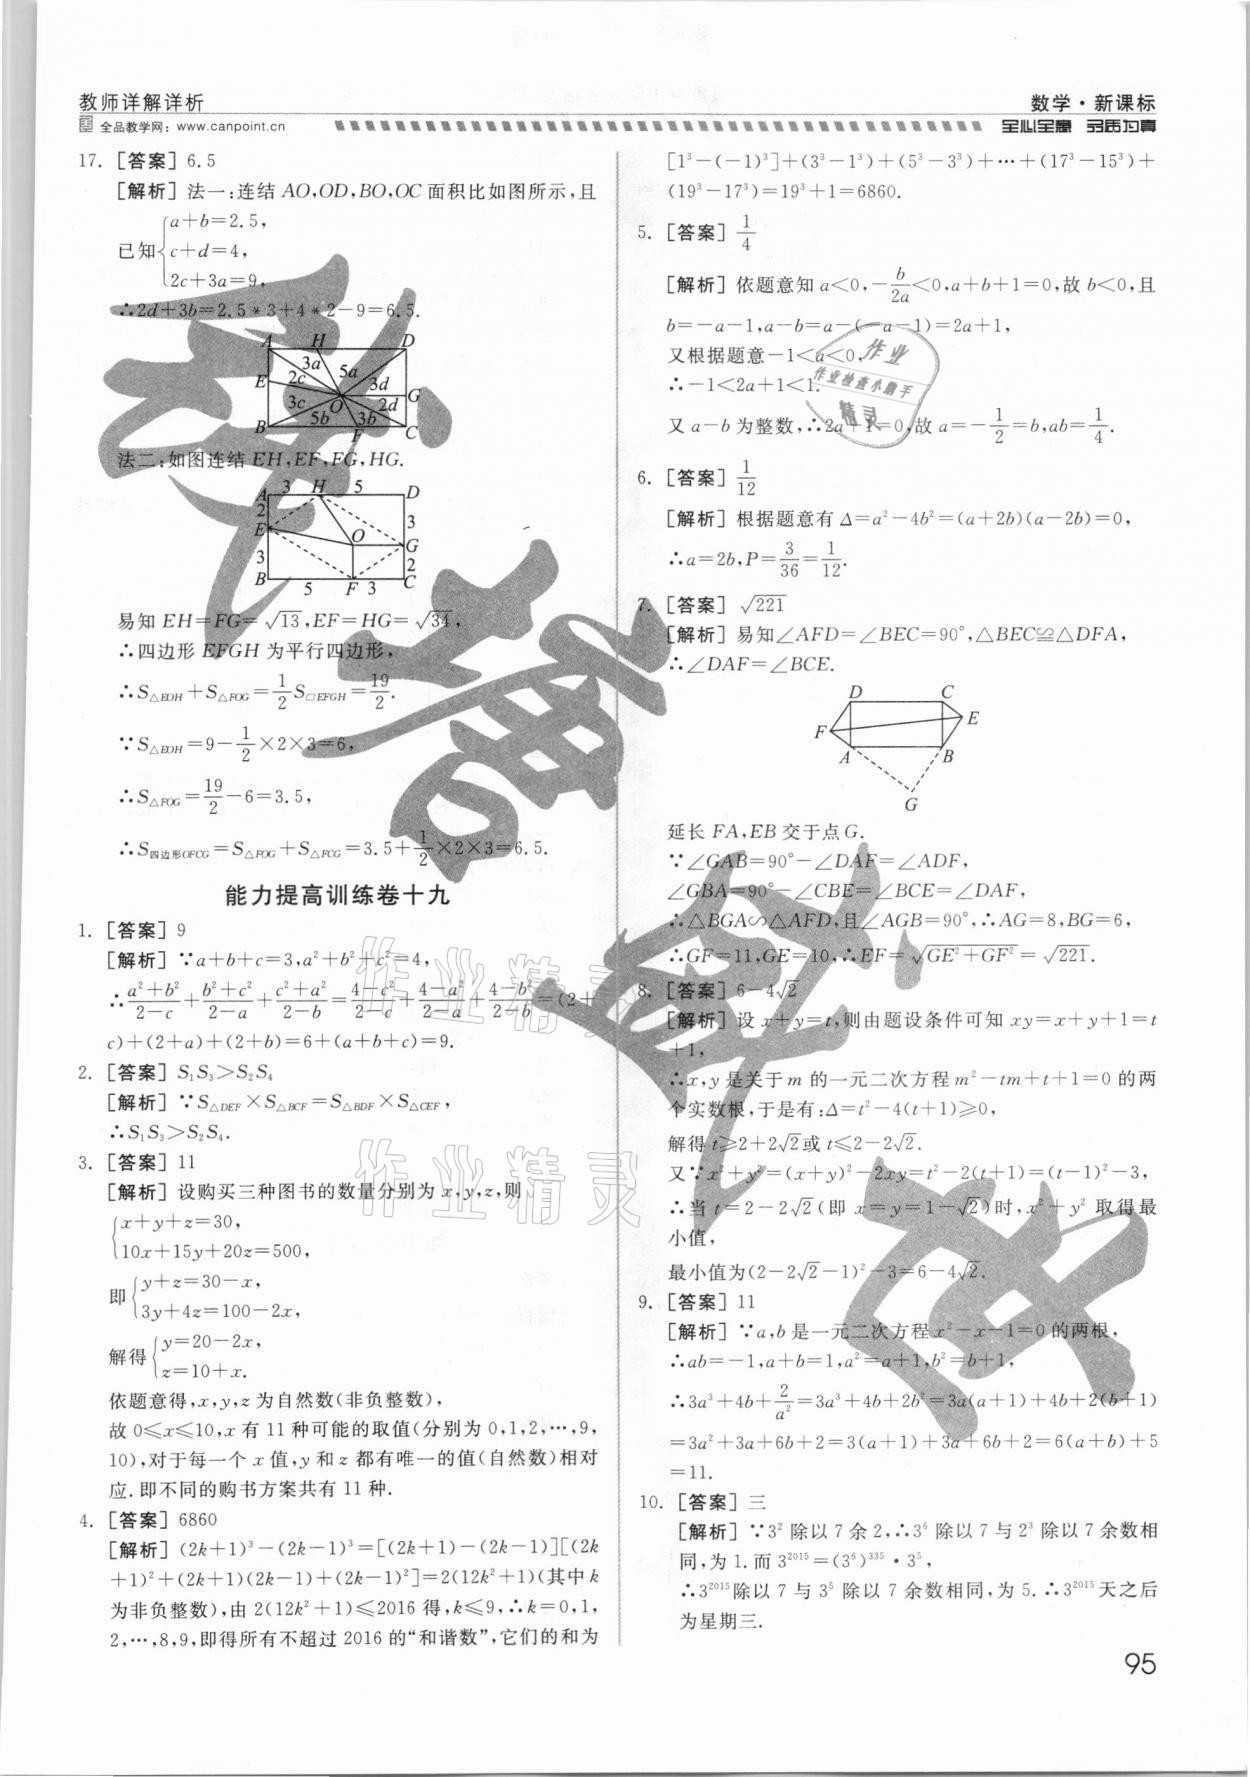 教师详解详析
数学·新课标
全品教学网：www.canpoint.cn
全心全意 品质为真
17. [答案] 6.5
[解析] 法一：连结 AO,OD,BO,OC 面积比如图所示，且
已知{a+b=2.5,
c+d=4,
2c+3a=9,
∴2d+3b=2.5*3+4*2-9=6.5.
A H D
3a 5a
E 2c 3d
O G
3c 2d
5b 3b
B F C
法二：如图连结 EH,EF,FG,HG.
A 3 H 5 D
2
E O 3
G
3 2
B 5 F 3 C
易知 EH=FG=√13,EF=HG=√34,
∴四边形 EFGH 为平行四边形，
∴S△EOH+S△FOG=1/2 S□EFGH=19/2.
∵S△EOH=9-1/2×2×3=6,
∴S△FOG=19/2-6=3.5,
∴S四边形OFCG=S△FOG+S△FCG=3.5+1/2×2×3=6.5.
能力提高训练卷十九
1. [答案] 9
[解析] ∵a+b+c=3,a²+b²+c²=4,
∴(a²+b²)/(2-c)+(b²+c²)/(2-a)+(c²+a²)/(2-b)=(4-c²)/(2-c)+(4-a²)/(2-a)+(4-b²)/(2-b)=(2+
c)+(2+a)+(2+b)=6+(a+b+c)=9.
2. [答案] S₁S₃>S₂S₄
[解析] ∵S△DEF×S△BCF=S△BDF×S△CEF,
∴S₁S₃>S₂S₄.
3. [答案] 11
[解析] 设购买三种图书的数量分别为 x,y,z,则
{x+y+z=30,
10x+15y+20z=500,
即{y+z=30-x,
3y+4z=100-2x,
解得{y=20-2x,
z=10+x.
依题意得,x,y,z 为自然数(非负整数),
故 0≤x≤10,x 有 11 种可能的取值(分别为 0,1,2,…,9,
10),对于每一个 x 值,y 和 z 都有唯一的值(自然数)相对
应.即不同的购书方案共有 11 种.
4. [答案] 6860
[解析] (2k+1)³-(2k-1)³=[(2k+1)-(2k-1)][(2k
+1)²+(2k+1)(2k-1)+(2k-1)²]=2(12k²+1)(其中 k
为非负整数),由 2(12k²+1)≤2016 得,k≤9,∴k=0,1,
2,…,8,9,即得所有不超过 2016 的“和谐数”,它们的和为
[1³-(-1)³]+(3³-1³)+(5³-3³)+…+(17³-15³)+
(19³-17³)=19³+1=6860.
5. [答案] 1/4
[解析] 依题意知 a<0,-b/2a<0,a+b+1=0,故 b<0,且
b=-a-1,a-b=a-(-a-1)=2a+1,
又根据题意-1<a<0,
∴-1<2a+1<1.
又 a-b 为整数,∴2a+1=0,故 a=-1/2=b,ab=1/4.
6. [答案] 1/12
[解析] 根据题意有 Δ=a²-4b²=(a+2b)(a-2b)=0,
∴a=2b,P=3/36=1/12.
7. [答案] √221
[解析] 易知∠AFD=∠BEC=90°,△BEC≌△DFA,
∴∠DAF=∠BCE.
D C
F E
A B
G
延长 FA,EB 交于点 G.
∵∠GAB=90°-∠DAF=∠ADF,
∠GBA=90°-∠CBE=∠BCE=∠DAF,
∴△BGA∽△AFD,且∠AGB=90°,∴AG=8,BG=6,
∴GF=11,GE=10,∴EF=√(GE²+GF²)=√221.
8. [答案] 6-4√2
[解析] 设 x+y=t,则由题设条件可知 xy=x+y+1=t
+1,
∴x,y 是关于 m 的一元二次方程 m²-tm+t+1=0 的两
个实数根,于是有:Δ=t²-4(t+1)≥0,
解得 t≥2+2√2或 t≤2-2√2.
又∵x²+y²=(x+y)²-2xy=t²-2(t+1)=(t-1)²-3,
∴当 t=2-2√2(即 x=y=1-√2)时,x²+y² 取得最
小值,
最小值为(2-2√2-1)²-3=6-4√2.
9. [答案] 11
[解析] ∵a,b 是一元二次方程 x²-x-1=0 的两根,
∴ab=-1,a+b=1,a²=a+1,b²=b+1,
∴3a³+4b+2/a²=3a³+4b+2b²=3a(a+1)+4b+2(b+1)
=3a²+3a+6b+2=3(a+1)+3a+6b+2=6(a+b)+5
=11.
10. [答案] 三
[解析] ∵3² 除以 7 余 2,∴3⁶ 除以 7 与 2³ 除以 7 余数相
同,为 1.而 3²⁰¹⁵=(3⁶)³³⁵·3⁵,
∴3²⁰¹⁵除以 7 与 3⁵ 除以 7 余数相同,为 5.∴3²⁰¹⁵天之后
为星期三.
95
作业
作业检查小助手
精灵
作业精灵
作业精灵